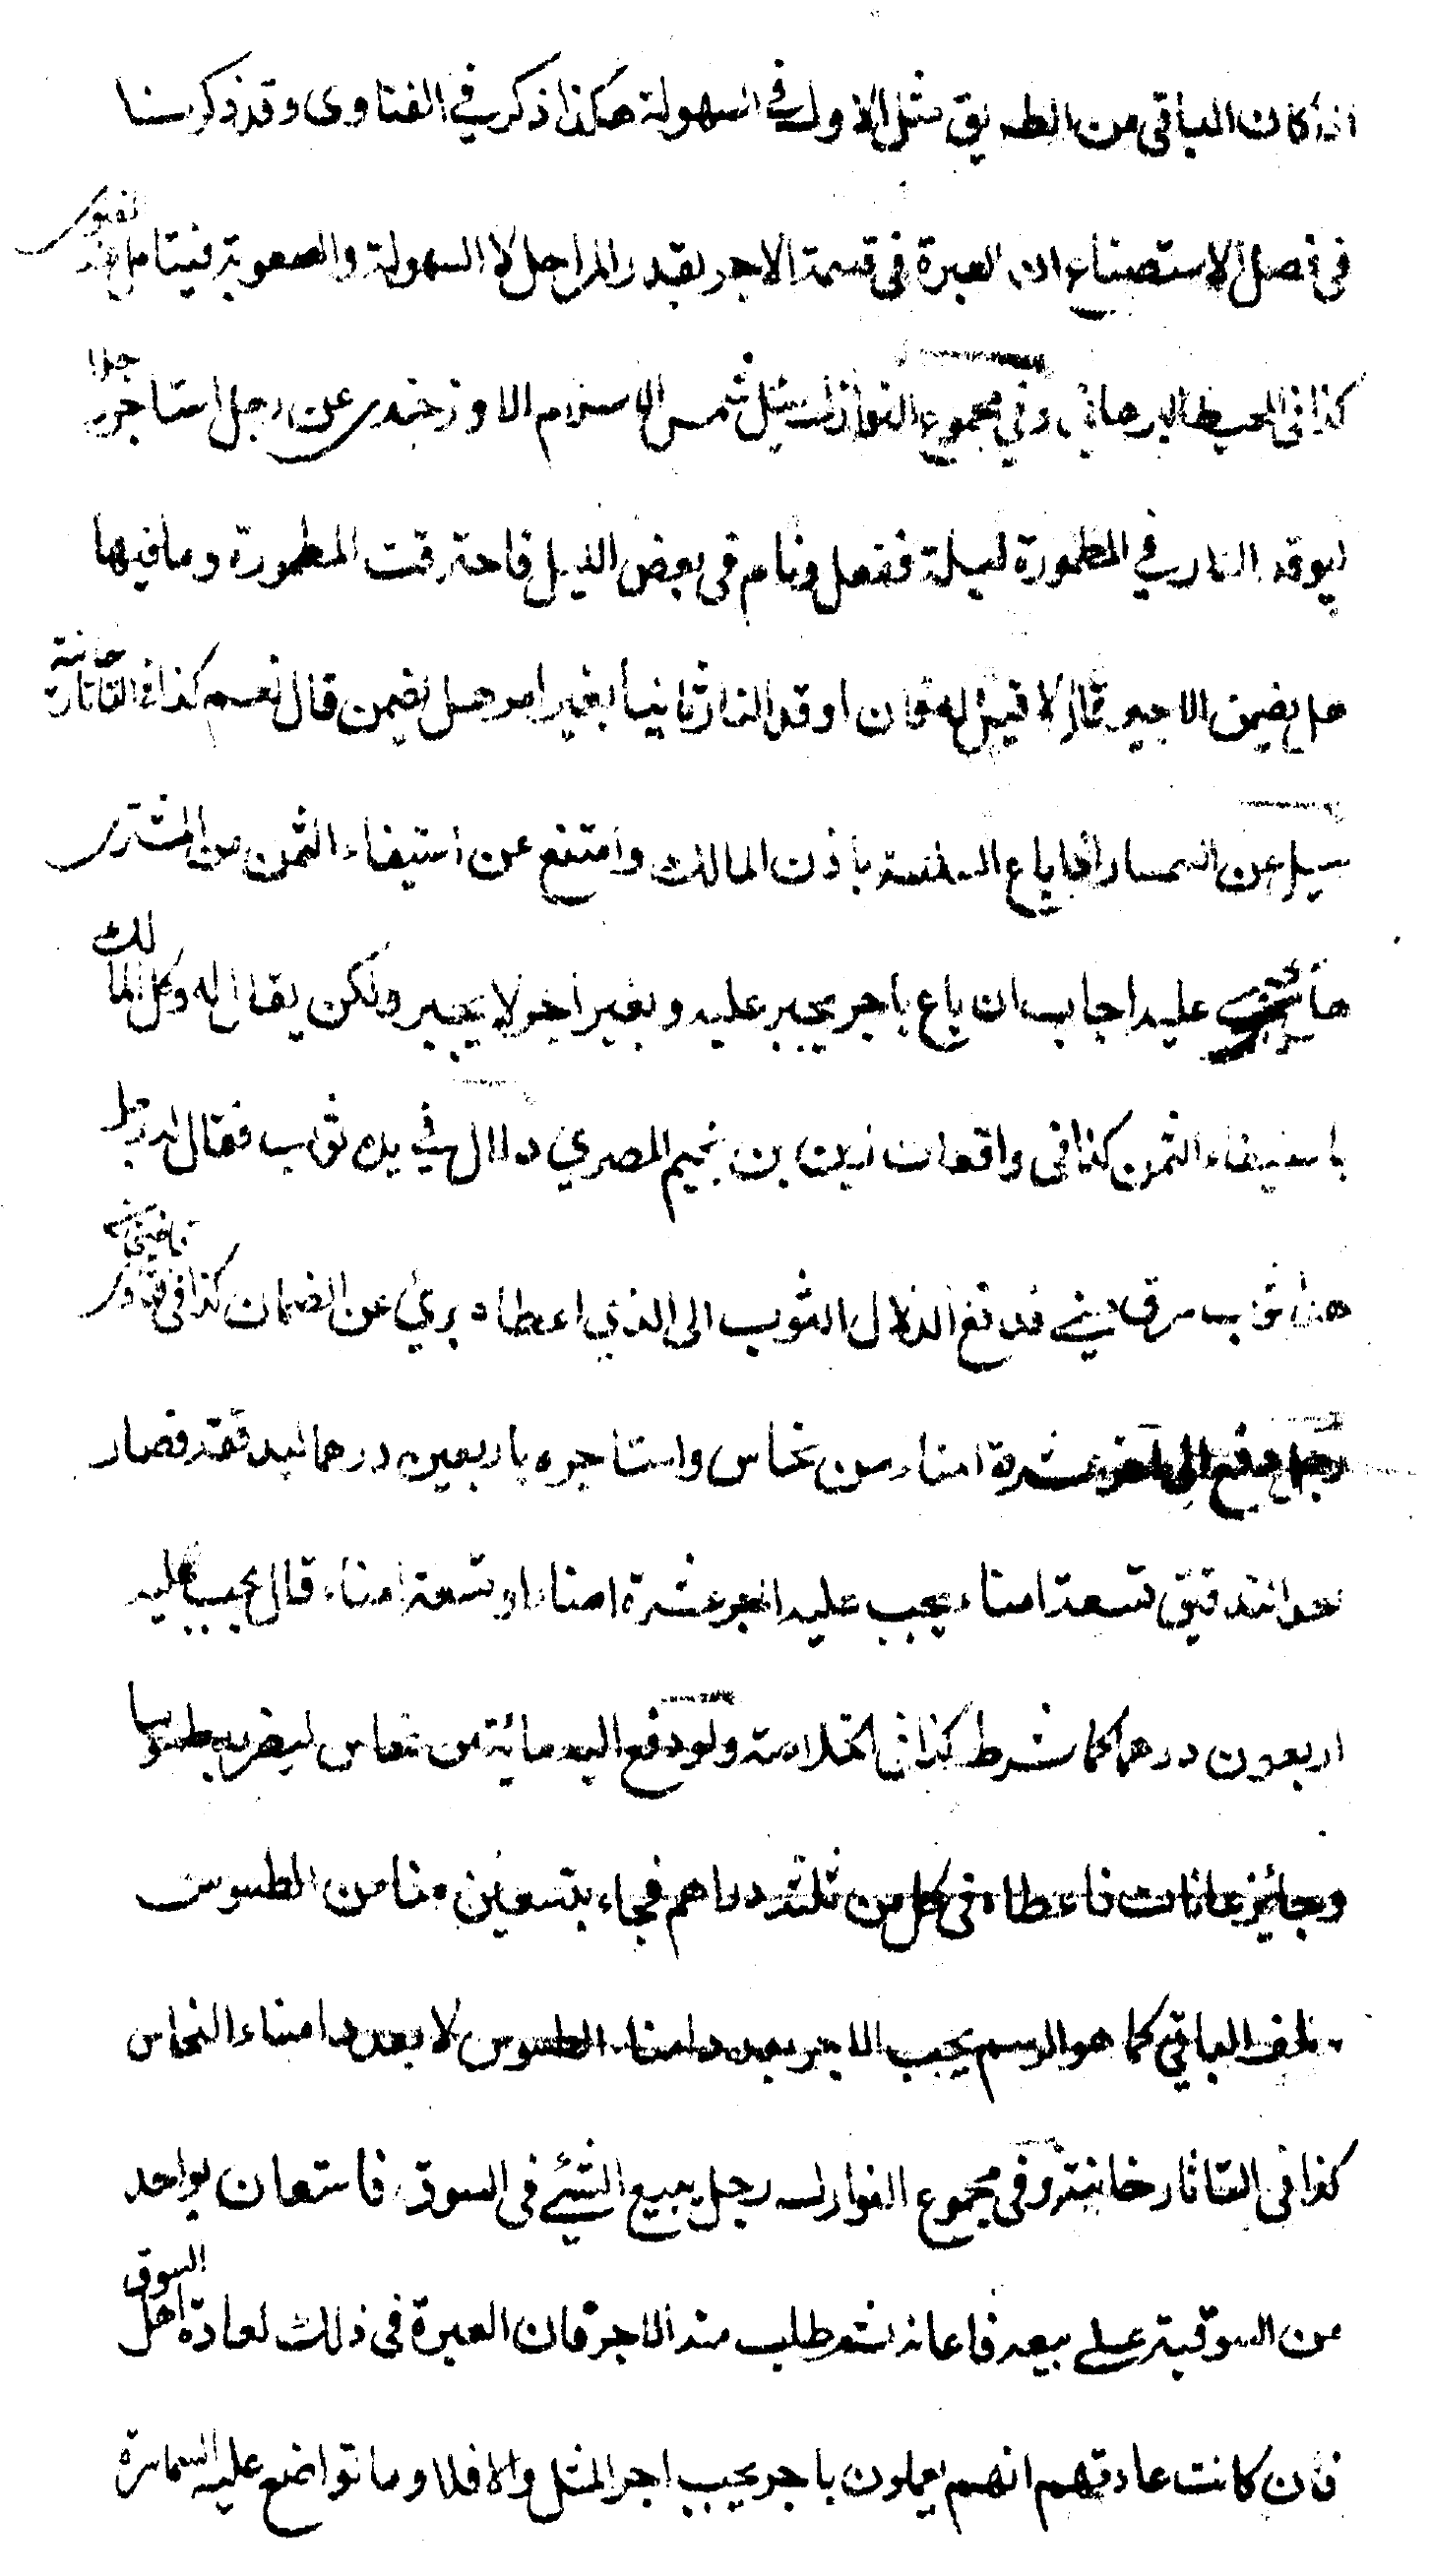 اذا كان الباقي من الطريق مثل الاول في السهولة هكذا ذكر في الفتاوى وقد ذكرنا
في فصل الاستصناع ان العبرة في قسمة الاجر بقدر المراحل لا السهولة والصعوبة فيتامل عند الفتوى
كذا في المحيط البرهاني وفي مجموع النوازل سئل شمس الاسلام الاوزجندى عن رجل استاجر رجلا
ليوقد النار في المطمورة ليلة ففعل ونام في بعض الليل فاحترقت المطمورة وما فيها
هل يضمن الاجير قال لا قيل له فان اوقد النار ثانيا بغير امر هل يضمن قال نعم كذا في التاتارخانية
سيل عن السمسار اذا باع السلعة باذن المالك وامتنع عن استيفاء الثمن من المشترى
هل يجبر عليه اجاب ان باع باجر يجبر عليه وبغير اجر لا يجبر ولكن يقال له وكل المالك
باستيفاء الثمن كذا في واقعات زين بن نجيم المصري دلال في يده ثوب فقال له رجل
هذا ثوب سرق مني فدفع الدلال الثوب الى الذي اعطاه برئ عن الضمان كذا في فتاوى قاضيخان
رجل دفع الى اخر عشرة امناء من نحاس واستاجره باربعين درهما ليدققه فصار
بعد التدقيق تسعة امناء يجب عليه اجر عشرة امناء او تسعة امناء قال يجب عليه
اربعون درهما كما شرط كذا في الخلاصة ولو دفع اليه مائة من نحاس ليضربه طسوسا
فاعطاه في كل من ثلثة دراهم فجاء بتسعين منا من الطسوس
وتلف الباقي كما هو الرسم يجب الاجر بعدد امناء الطسوس لا بعدد امناء النحاس
كذا في التاتارخانية وفي مجموع النوازل رجل يبيع الشئ في السوق فاستعان بواحد
من السوقية على بيعه فاعانه ثم طلب منه الاجر فان العبرة في ذلك لعادة اهل السوق
فان كانت عادتهم انهم يعملون باجر يجب اجر المثل والا فلا وما تواضع عليه السماسرة